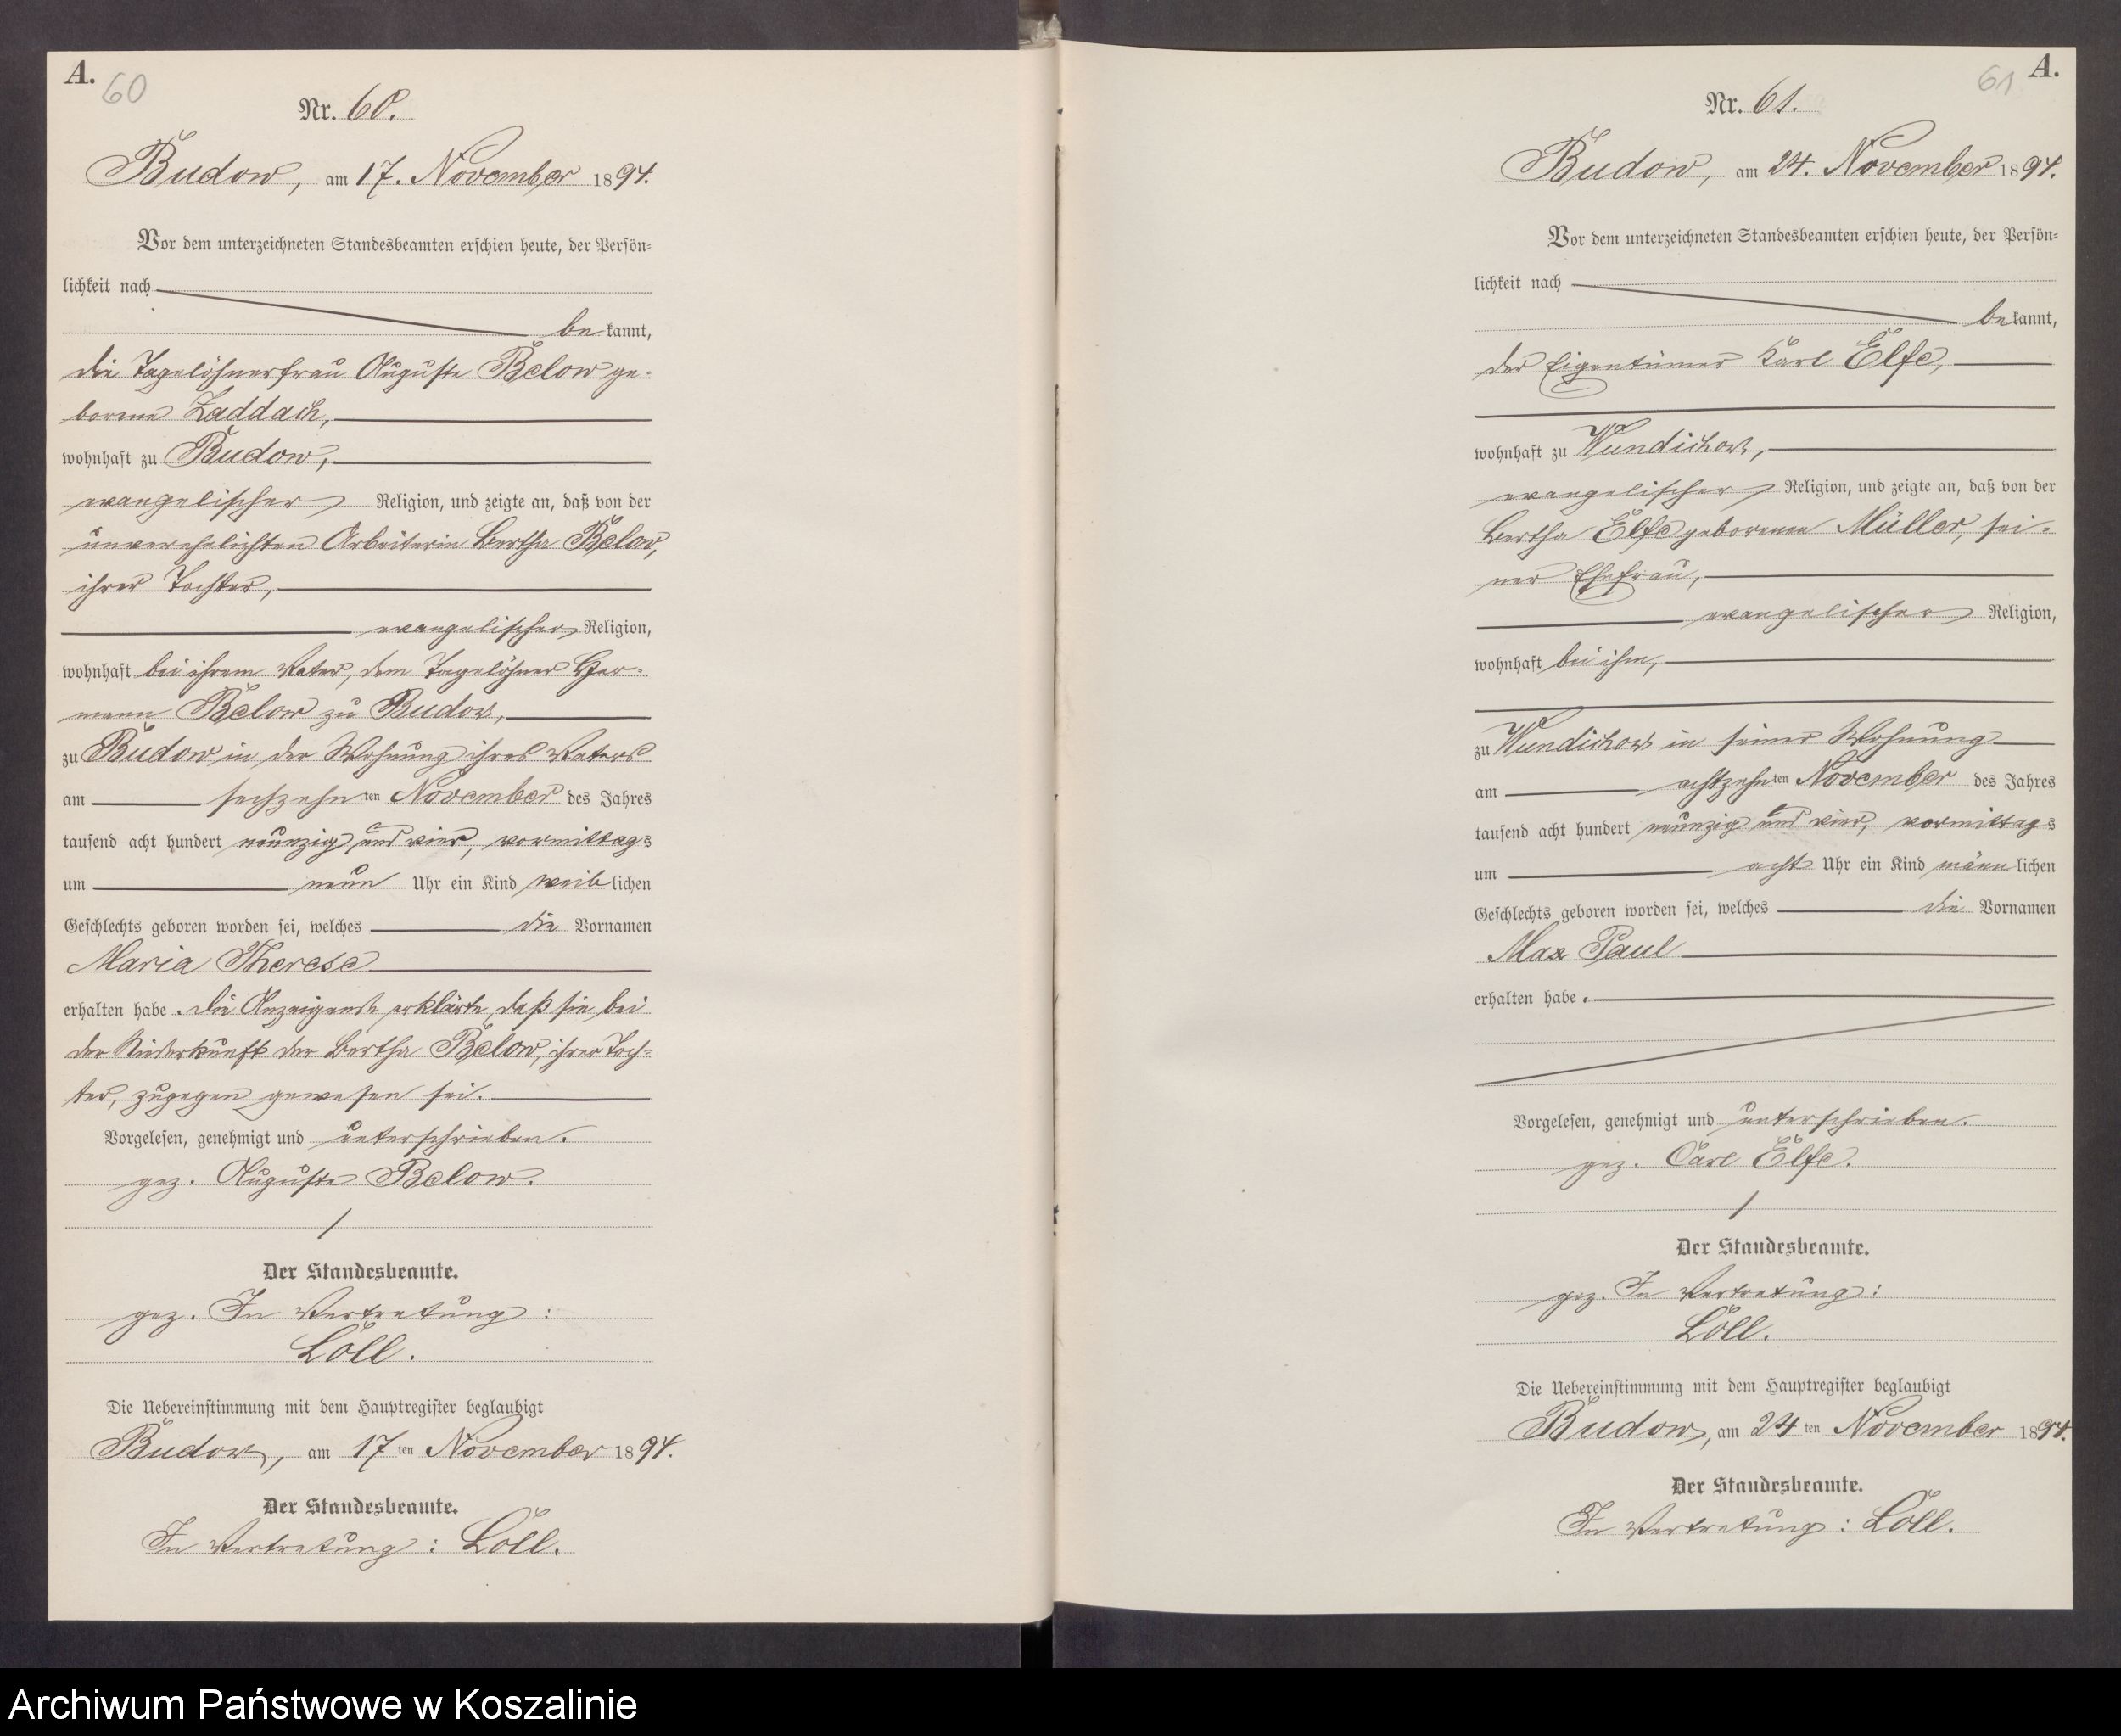 A.
60
Nr. 60.
Budow, am 17. November 1894.
Vor dem unterzeichneten Standesbeamten erschien heute, der Persön-
lichkeit nach
bekannt,
die Tagelöhnerfrau Auguste Below ge-
borene Zaddach,
wohnhaft zu Budow,
evangelischer Religion, und zeigte an, daß von der
unverehelichten Arbeiterin Bertha Below,
ihrer Tochter,
evangelischer Religion,
wohnhaft bei ihrem Vater, dem Tagelöhner Her-
mann Below zu Budow,
zu Budow in der Wohnung ihres Vaters
am sechzehnten November des Jahres
tausend acht hundert neunzig und vier, vormittags
um neun Uhr ein Kind weiblichen
Geschlechts geboren worden sei, welches die Vornamen
Maria Therese
erhalten habe. Die Anzeigende erklärte, daß sie bei
der Niederkunft der Bertha Below, ihrer Toch-
ter, zugegen gewesen sei.
Vorgelesen, genehmigt und unterschrieben.
gez. Auguste Below.
Der Standesbeamte.
gez. In Vertretung:
Löll.
Die Uebereinstimmung mit dem Hauptregister beglaubigt
Budow, am 17ten November 1894.
Der Standesbeamte.
In Vertretung: Löll.
A.
61
Nr. 61.
Budow, am 24. November 1894.
Vor dem unterzeichneten Standesbeamten erschien heute, der Persön-
lichkeit nach
bekannt,
der Eigentümer Karl Elfe,
wohnhaft zu Wundichow,
evangelischer Religion, und zeigte an, daß von der
Bertha Elfe geborenen Müller, sei-
ner Ehefrau,
evangelischer Religion,
wohnhaft bei ihm,
zu Wundichow in seiner Wohnung
am achtzehnten November des Jahres
tausend acht hundert neunzig und vier, vormittags
um acht Uhr ein Kind männlichen
Geschlechts geboren worden sei, welches die Vornamen
Max Paul
erhalten habe.
Vorgelesen, genehmigt und unterschrieben.
gez. Carl Elfe.
Der Standesbeamte.
gez. In Vertretung:
Löll.
Die Uebereinstimmung mit dem Hauptregister beglaubigt
Budow, am 24ten November 1894.
Der Standesbeamte.
In Vertretung: Löll.
Archiwum Państwowe w Koszalinie